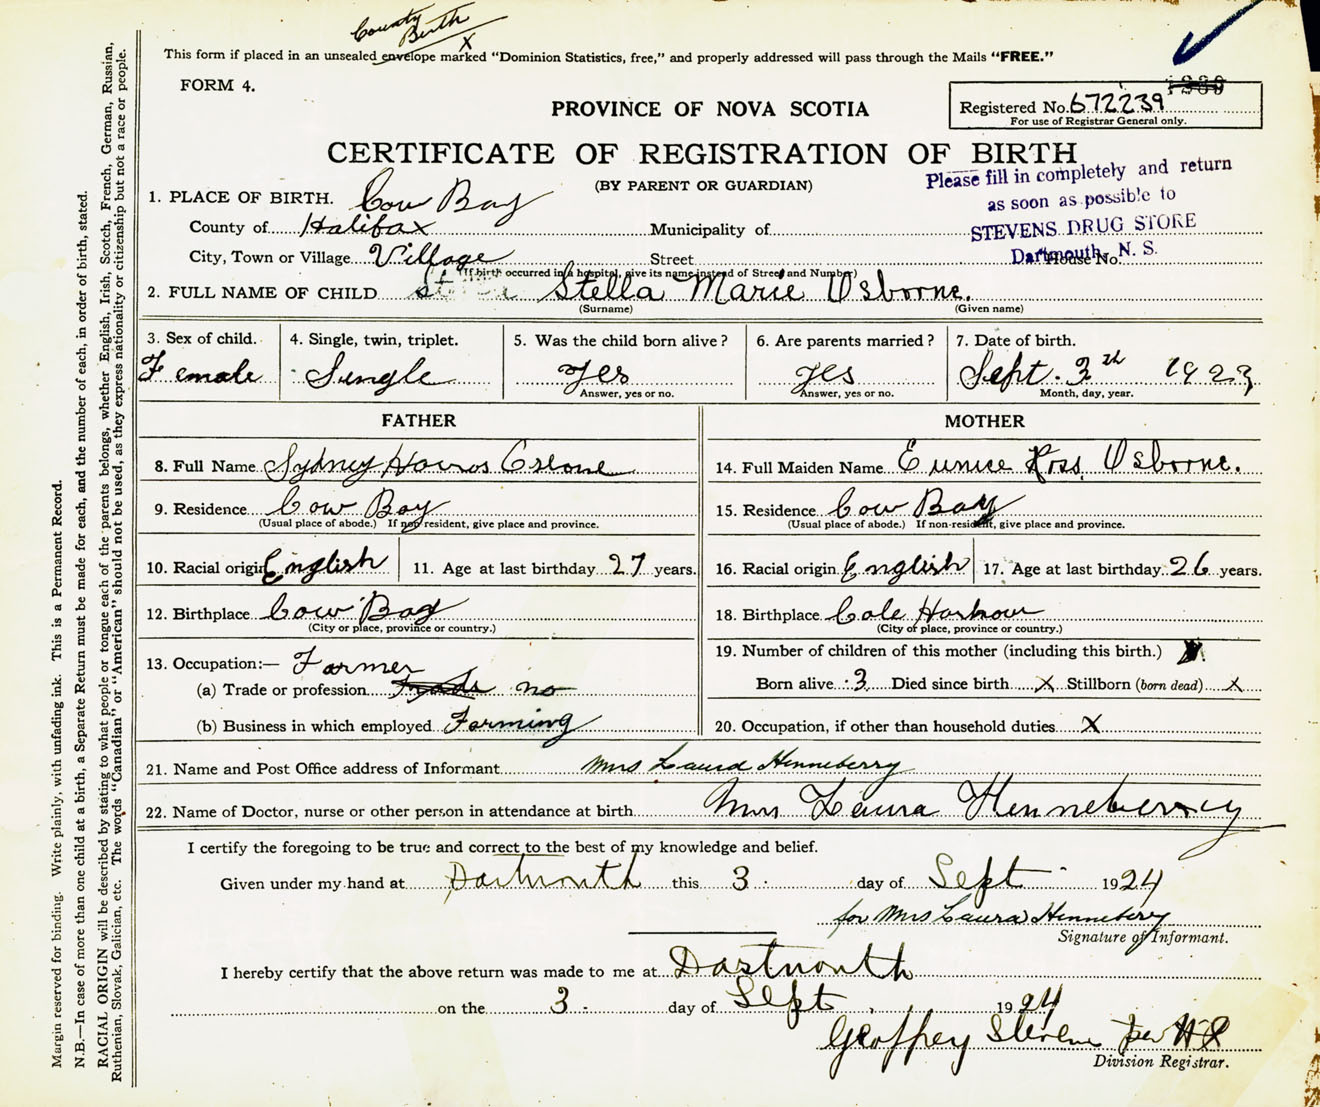 County
Birth
X
This form if placed in an unsealed envelope marked "Dominion Statistics, free," and properly addressed will pass through the Mails "FREE."
FORM 4.
PROVINCE OF NOVA SCOTIA
Registered No. 672239
For use of Registrar General only.
CERTIFICATE OF REGISTRATION OF BIRTH
(BY PARENT OR GUARDIAN)
Please fill in completely and return
as soon as possible to
STEVENS DRUG STORE
Dartmouth, N. S.
1. PLACE OF BIRTH. Cow Bay
County of Halifax Municipality of
City, Town or Village Village Street House No.
(If birth occurred in a hospital, give its name instead of Street and Number)
2. FULL NAME OF CHILD Stella Marie Osborne.
(Surname) (Given name)
3. Sex of child. 4. Single, twin, triplet. 5. Was the child born alive? 6. Are parents married? 7. Date of birth.
Female Single Yes Yes Sept. 3th 1923
Answer, yes or no. Answer, yes or no. Month, day, year.
FATHER
8. Full Name Sydney Osborne
9. Residence Cow Bay
(Usual place of abode.) If non-resident, give place and province.
10. Racial origin English 11. Age at last birthday 27 years.
12. Birthplace Cow Bay
(City or place, province or country.)
13. Occupation:— Farmer
(a) Trade or profession no
(b) Business in which employed Farming
MOTHER
14. Full Maiden Name Eunice Ross Osborne.
15. Residence Cow Bay
(Usual place of abode.) If non-resident, give place and province.
16. Racial origin English 17. Age at last birthday 26 years.
18. Birthplace Cole Harbour
(City or place, province or country.)
19. Number of children of this mother (including this birth.)
Born alive 3 Died since birth X Stillborn (born dead) X
20. Occupation, if other than household duties X
21. Name and Post Office address of Informant Mrs Laura Henneberry
22. Name of Doctor, nurse or other person in attendance at birth Mrs Laura Henneberry
I certify the foregoing to be true and correct to the best of my knowledge and belief.
Given under my hand at Dartmouth this 3 day of Sept 1924
for Mrs Laura Henneberry
Signature of Informant.
I hereby certify that the above return was made to me at Dartmouth
on the 3 day of Sept 1924
Geoffrey Stevens per
Division Registrar.
Margin reserved for binding. Write plainly, with unfading ink. This is a Permanent Record.
N.B.—In case of more than one child at a birth, a Separate Return must be made for each, and the number of each, in order of birth, stated.
RACIAL ORIGIN will be described by stating to what people or tongue each of the parents belongs, whether English, Irish, Scotch, French, German, Russian,
Ruthenian, Slovak, Galician, etc. The words "Canadian" or "American" should not be used, as they express nationality or citizenship but not a race or people.